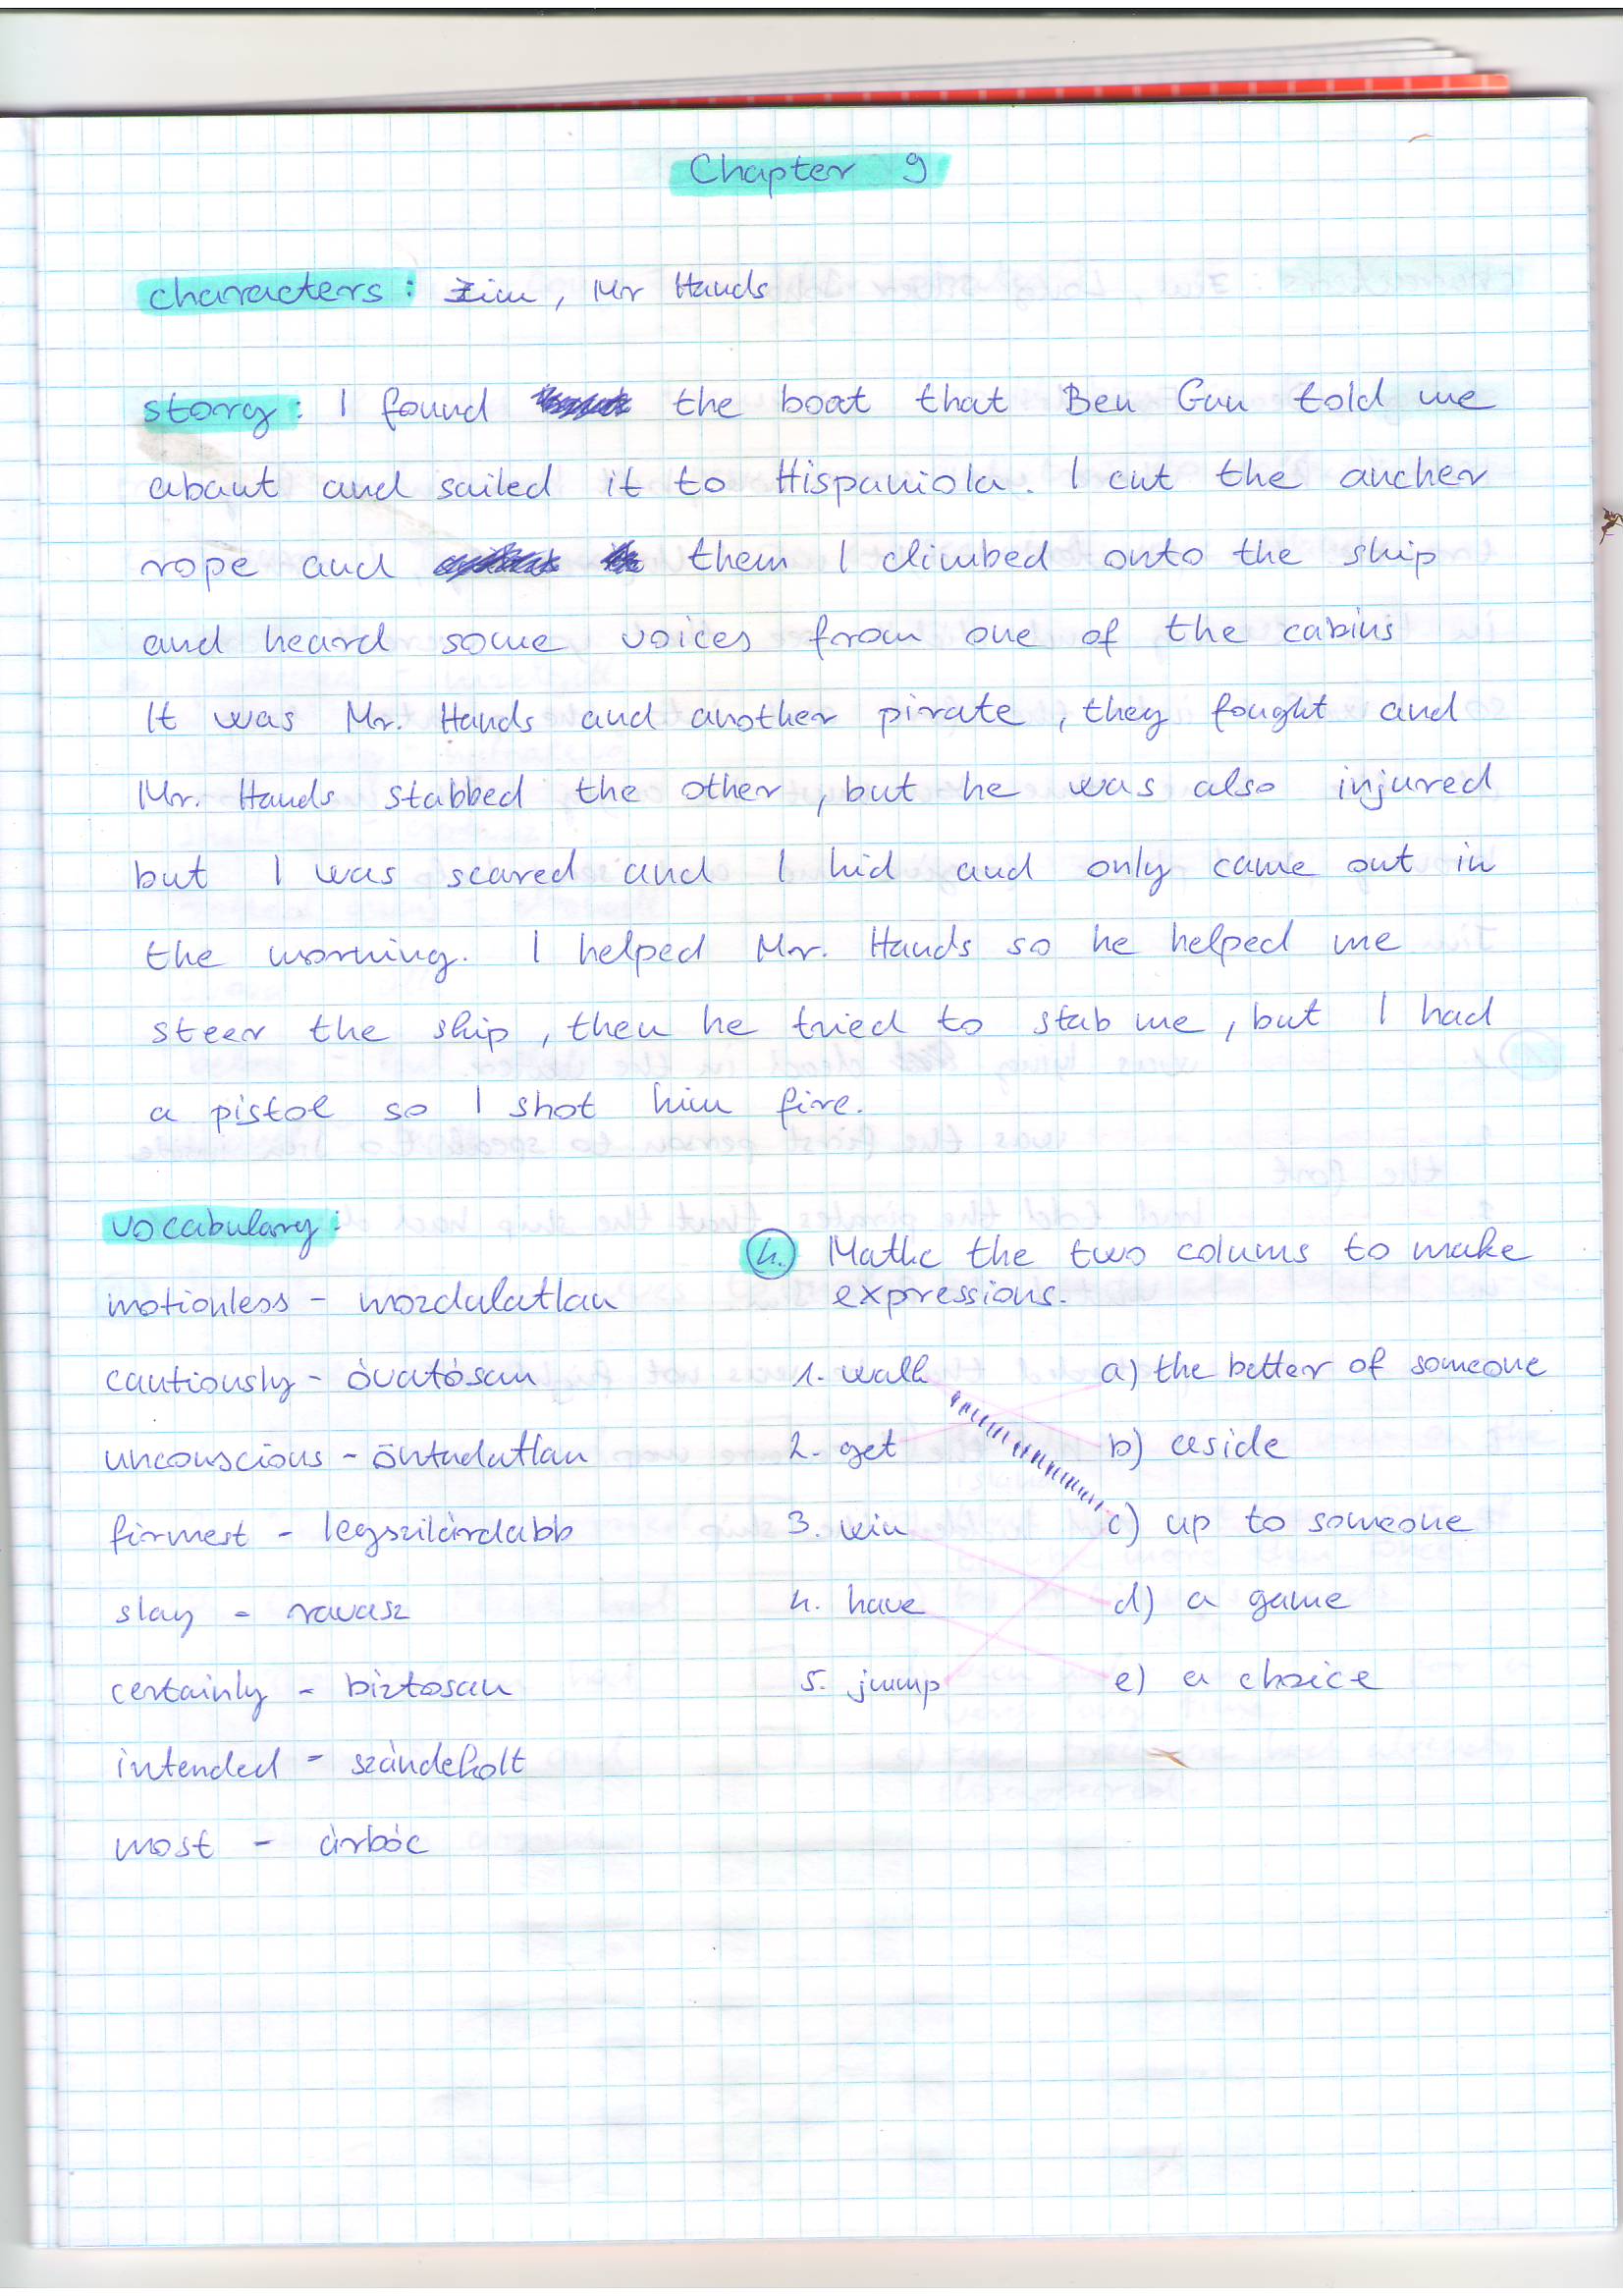 Chapter 9
characters: Jim, Mr Hands
story: I found the boat that Ben Gun told me
abaut and sailed it to Hispaniola. I cut the ancher
rope and them I climbed onto the ship
and heard some voices from one of the cabins
It was Mr. Hands and another pirate, they fought and
Mr. Hands stabbed the other, but he was also injured
but I was scared and I hid and only came out in
the morning. I helped Mr. Hands so he helped me
steer the ship, then he tried to stab me, but I had
a pistol so I shot him fire.
vocabulary:
motionless - mozdulatlan
cautiously - óvatósan
unconscious - öntudatlan
firmest - legszilárdabb
slay - ravasz
certainly - biztosan
intended - szándékolt
most - árbóc
4. Mathc the two colums to make
expressions.
1. walk a) the better of someone
2. get b) aside
3. win c) up to someone
4. have d) a game
5. jump e) a choice